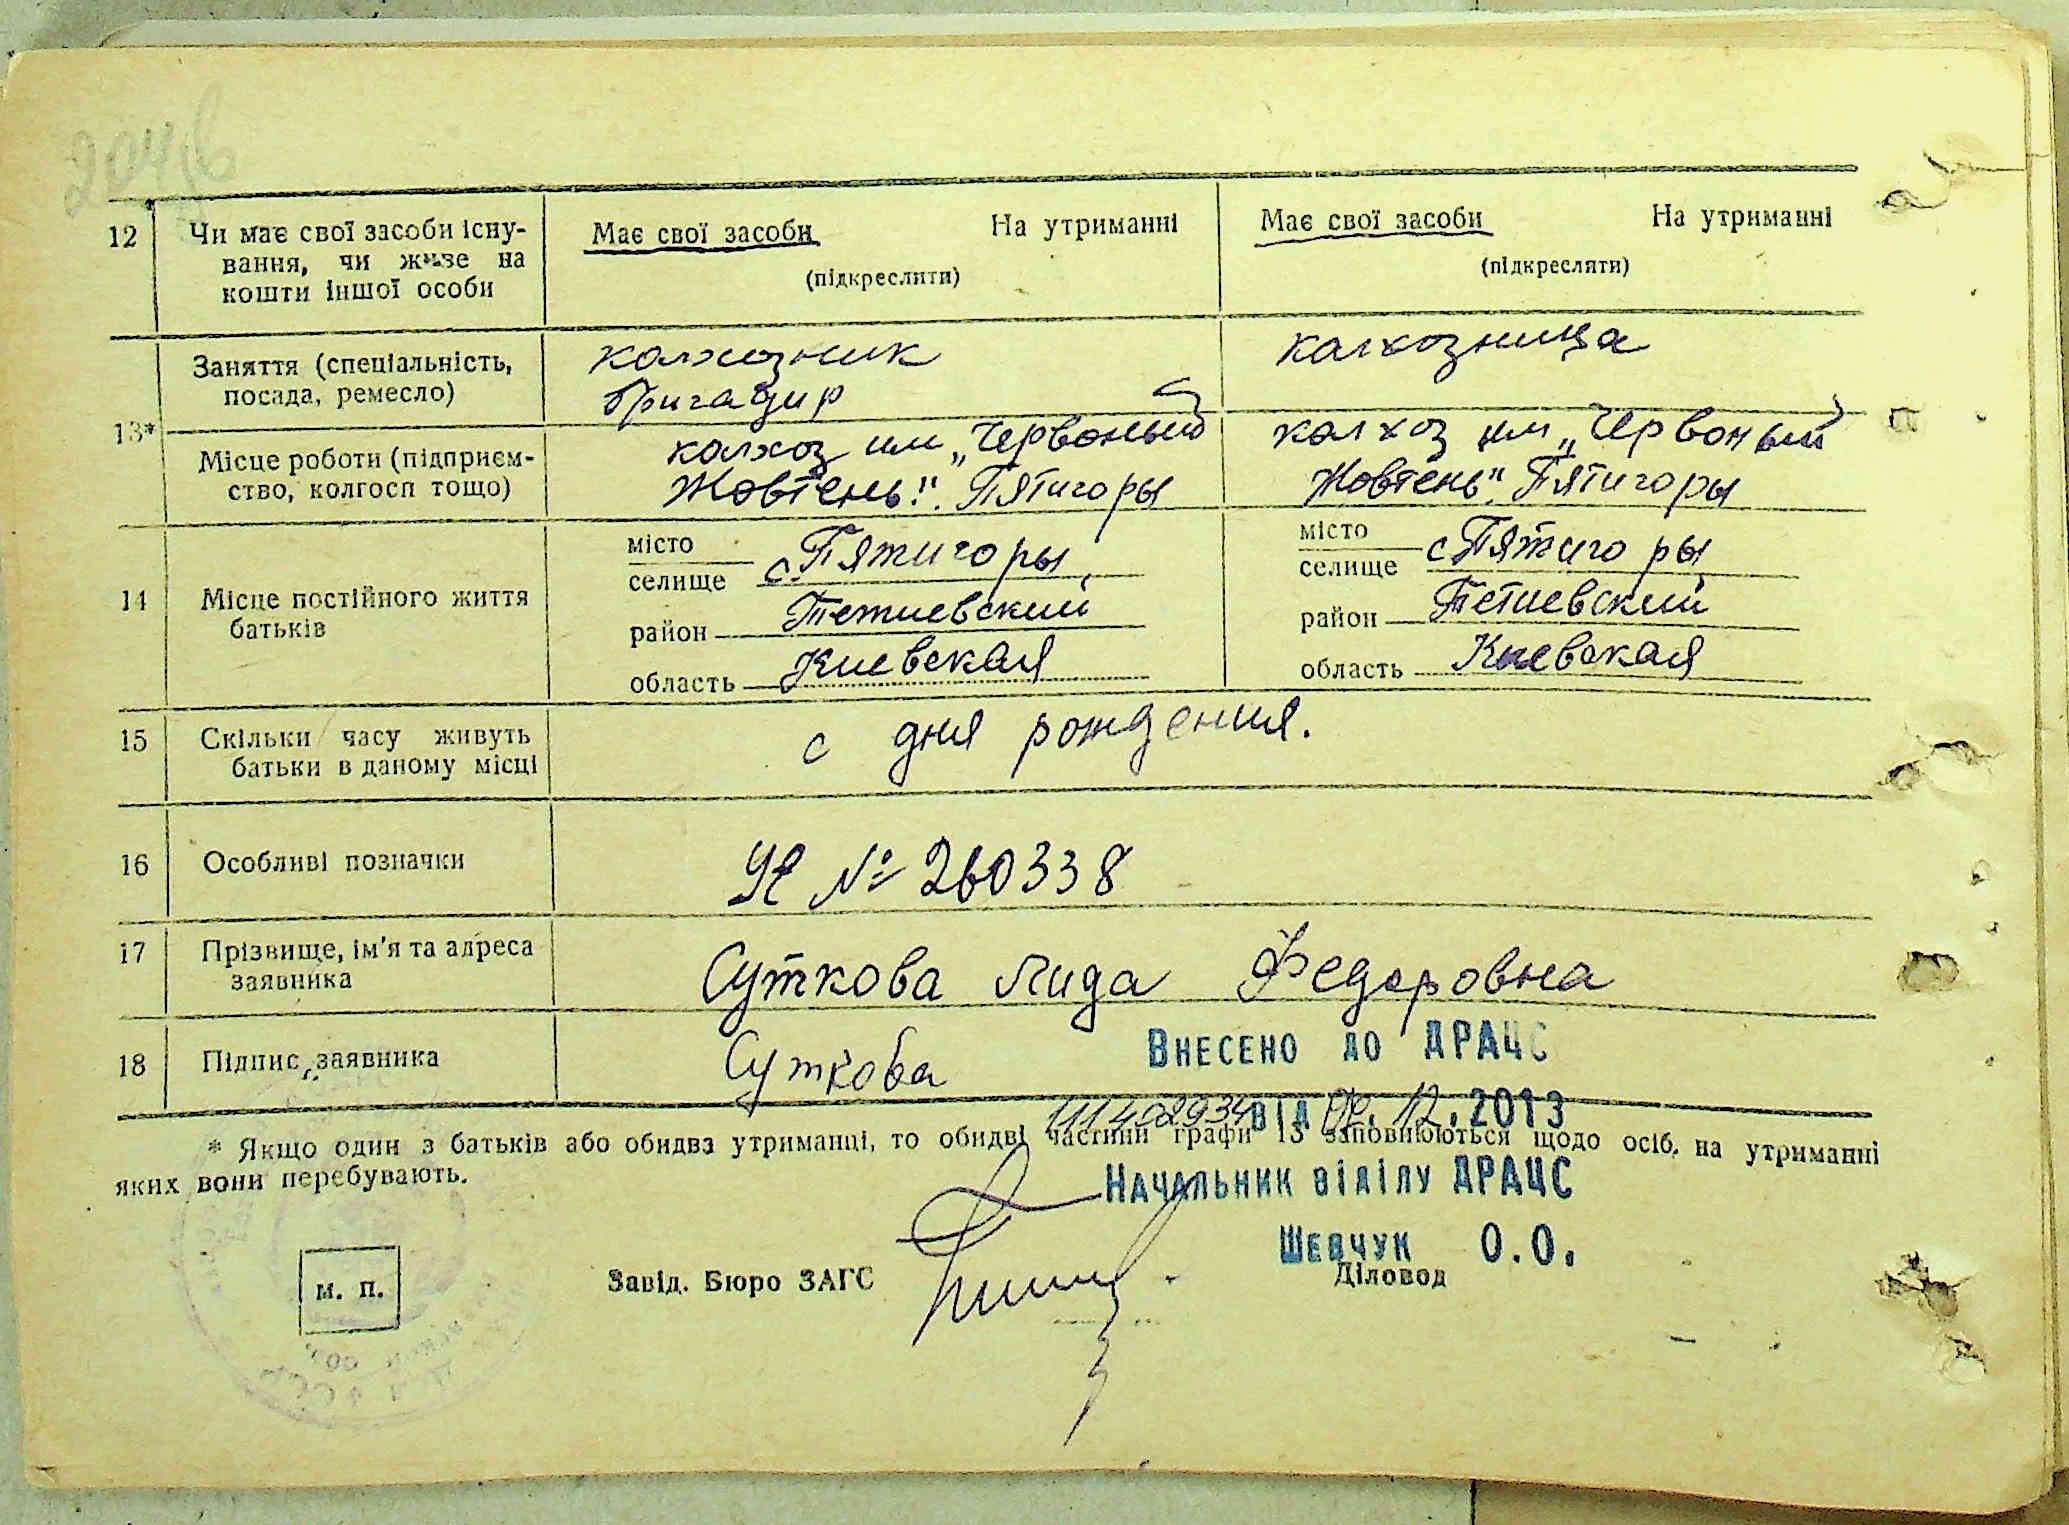 12 Чи має свої засоби існу-
вання, чи живе на
кошти іншої особи
Має свої засоби На утриманні
(підкреслити)
Має свої засоби На утриманні
(підкресляти)
13*
Заняття (спеціальність,
посада, ремесло)
колхозник
бригадир
колхозница
Місце роботи (підприєм-
ство, колгосп тощо)
колхоз им „Червоный
Жовтень". Пятигоры
колхоз им „Червоный
Жовтень". Пятигоры
14 Місце постійного життя
батьків
місто
селище с. Пятигоры,
район Тетиевский
область Киевская
місто
селище с Пятигоры
район Тетиевский
область Киевская
15 Скільки часу живуть
батьки в даному місці
с дня рождения.
16 Особливі позначки
№ 260338
17 Прізвище, ім'я та адреса
заявника
Суткова Лида Федоровна
18 Підпис заявника
Суткова
Внесено до ДРАЦС
від 12.2013
* Якщо один з батьків або обидва утриманці, то обидві частини графи 13 заповнюються щодо осіб, на утриманні
яких вони перебувають.
Начальник відділу ДРАЦС
Шевчук О.О.
м. п.
Завід. Бюро ЗАГС
Діловод